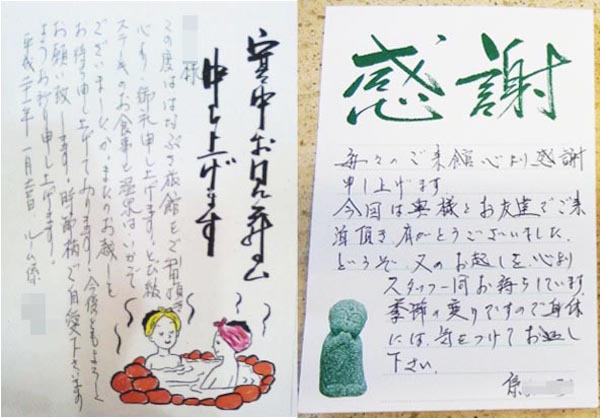 寒中お見舞い
申し上げます
様
この度ははなぶさ旅館をご利用頂き
心より御礼申し上げます。とび級
ステーキのお食事と温泉はいかがで
ございましたか。またのお越しを
お待ち申し上げております。今後ともよろしく
お願い致します。時節柄ご自愛下さいます
ようお祈り申し上げます。
平成二十一年 一月吉日 ルーム係
感謝
毎々のご来館心より感謝
申し上げます
今回は奥様とお友達でご来
泊頂き有がとうございました。
どうぞ、又のお越しを心より
スタッフ一同お待ちしています。
季節の変りですので身体
には、気をつけてお過し
下さい。
係